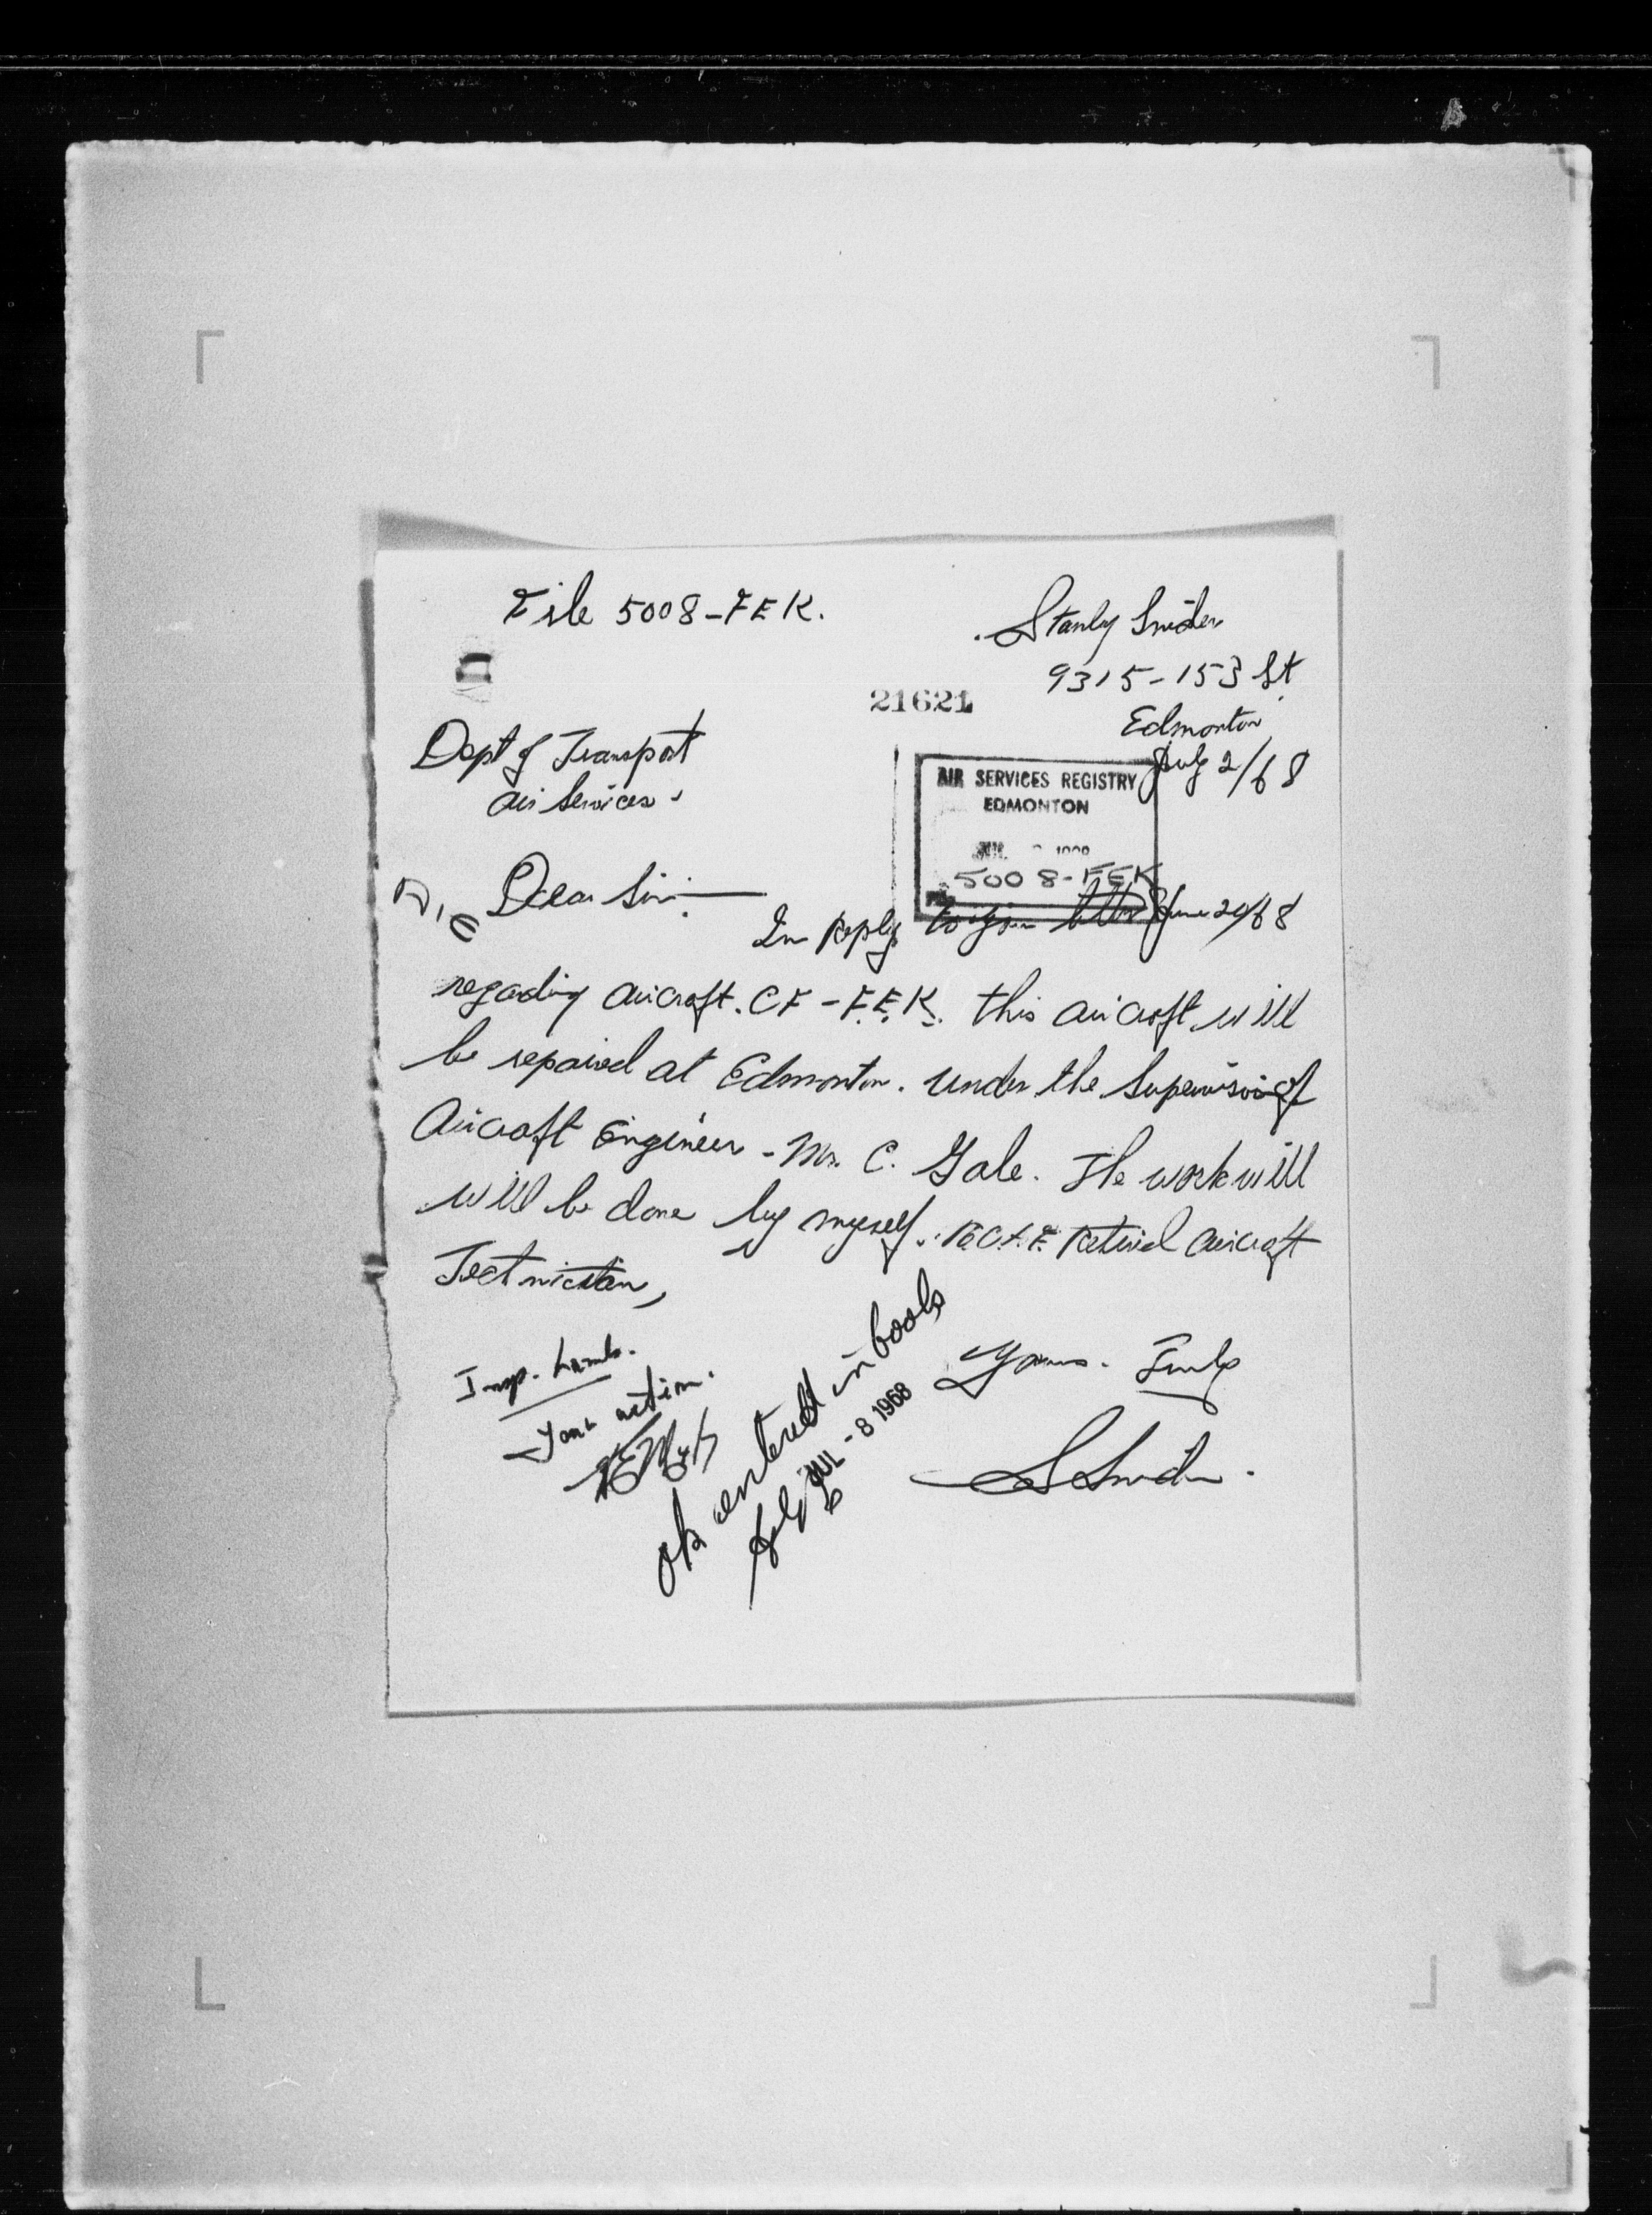 File 5008-FEK.
Stanly Snider
9315-153 St.
21621
Edmonton
July 2/68
Dept of Transport
Air Services.
AIR SERVICES REGISTRY
EDMONTON
5008-FEK
Dear Sir:
In Reply to your letter June 20/68
regarding aircraft. CF-F.E.K. this aircraft will
be repaired at Edmonton. under the Supervision of
Aircraft Engineer - Mr. C. Gale. The work will
will be done by myself. R.C.A.F. Retired Aircraft
Technician,
Insp. Lamb.
Your action.
ok entered in books
JUL - 8 1968
Yours. Truly
S Snider.